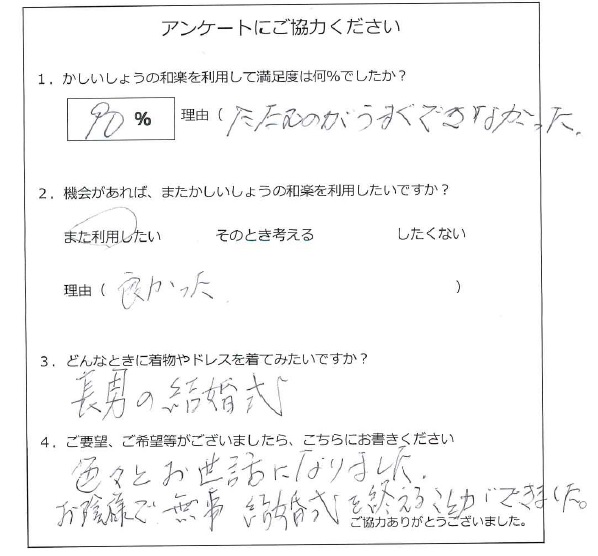 アンケートにご協力ください
1．かしいしょうの和楽を利用して満足度は何%でしたか？
90 % 理由（たたむのがうまくできなかった.
2．機会があれば、またかしいしょうの和楽を利用したいですか？
また利用したい そのとき考える したくない
理由（良かった ）
3．どんなときに着物やドレスを着てみたいですか？
長男の結婚式
4．ご要望、ご希望等がございましたら、こちらにお書きください
色々とお世話になりました.
お陰様で無事 結婚式を終える事ができました。
ご協力ありがとうございました。